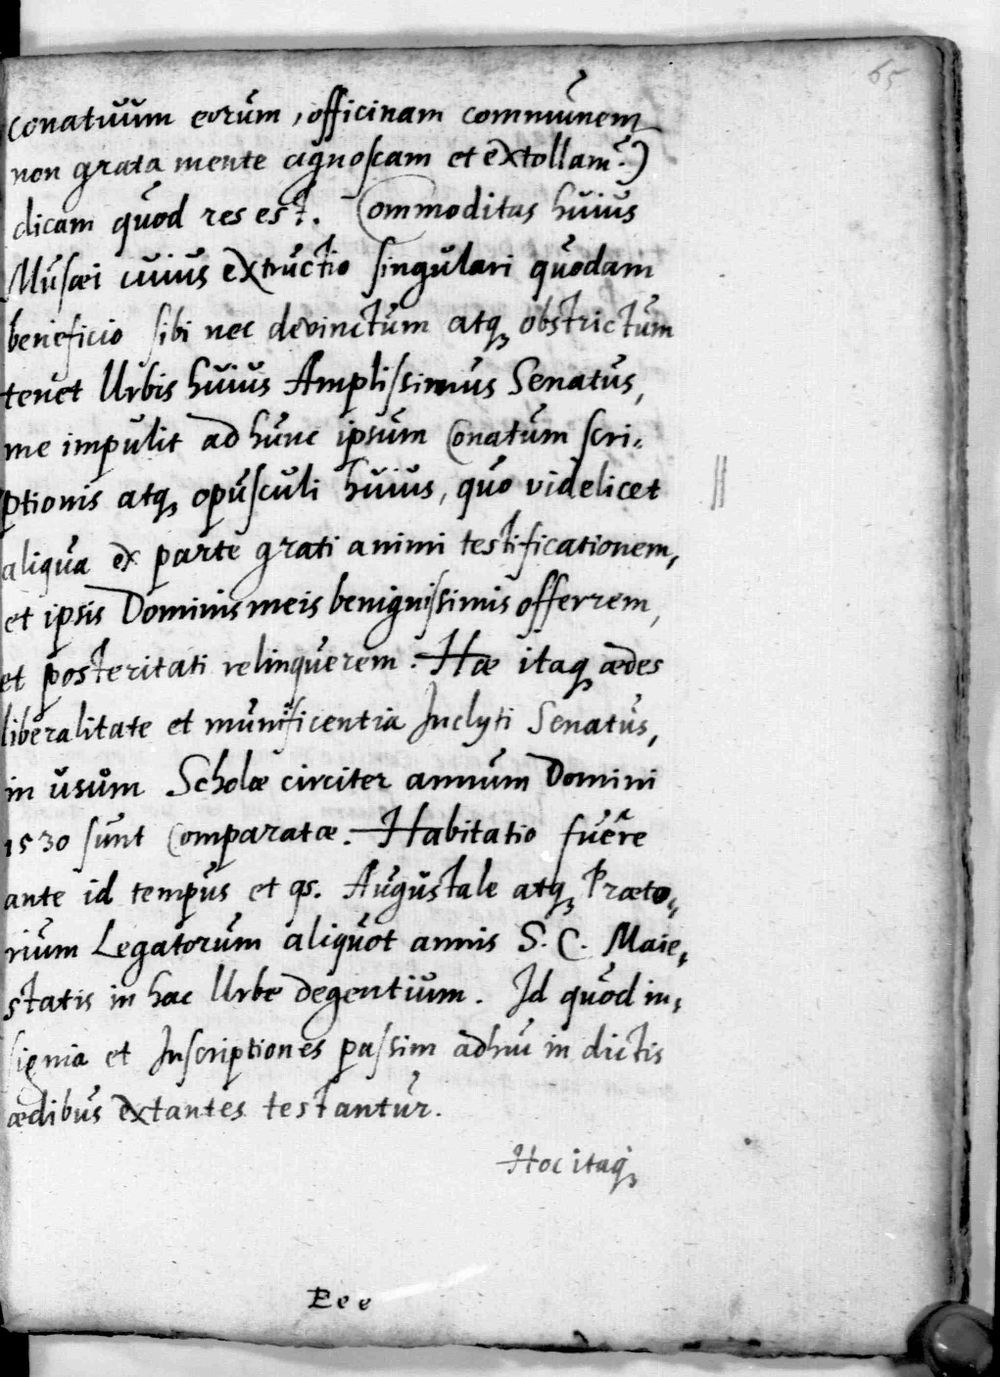 65
conatuum eorum, officinam communem
non grata mente agnoscam et extollam?)
dicam quod res est. Commoditas huius
Musæi cuius extructio singulari quodam
beneficio sibi nec devinctum atq, obstrictum
tenet Urbis huius Amplissimus Senatus,
me impulit ad hunc ipsum Conatum scri-
ptionis atq, opusculi huius, quo videlicet
aliqua ex parte grati animi testificationem,
et ipsis Dominis meis benignissimis offerrem,
et posteritati relinquerem. Hæ itaq, ædes
liberalitate et munificentia Inclyti Senatus,
in usum Scholæ circiter annum Domini
1530 sunt Comparatæ. Habitatio fuere
ante id tempus et qs. Augustale atq, Præto-
rium Legatorum aliquot annis S. C. Maie-
statis in hac Urbe degentium. Id quod in-
signia et Inscriptiones passim adhuc in dictis
ædibus extantes testantur.
Hoc itaq,
Eee